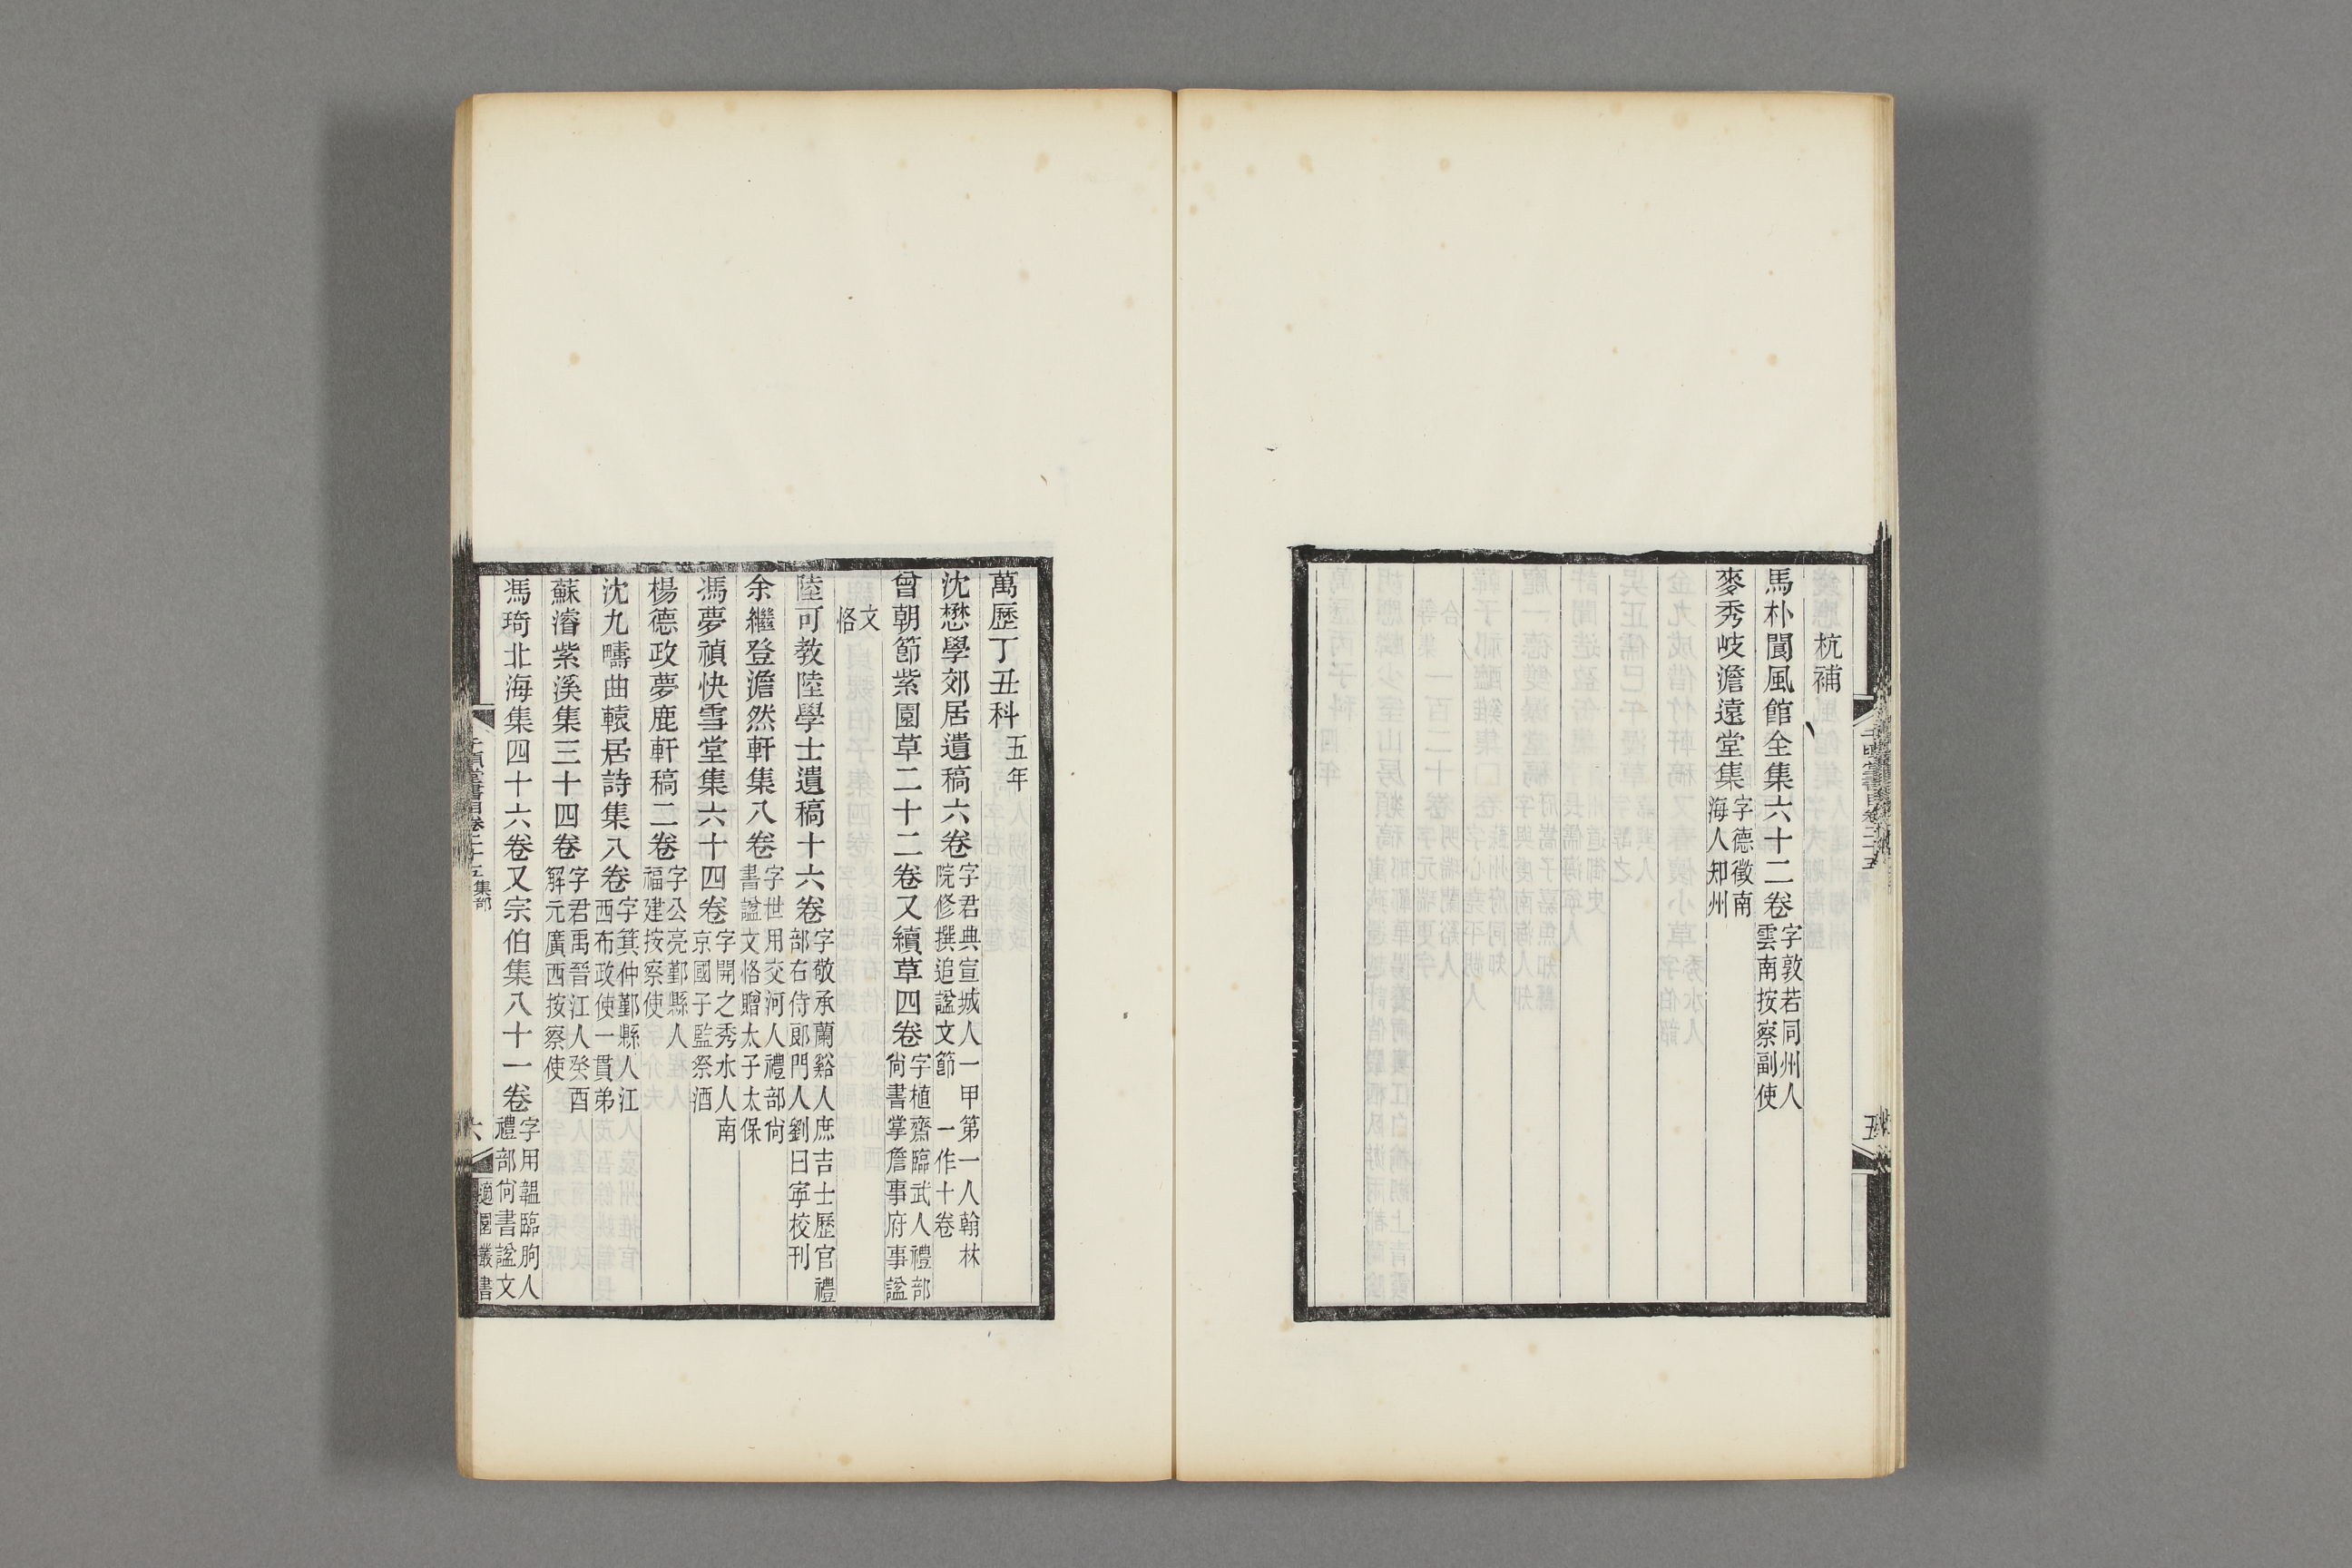 杭補
馬朴閬風館全集六十二卷字敦若同州人
雲南按察副使
麥秀岐澹遠堂集字德徵南
海人知州
五
萬歷丁丑科五年
沈懋學郊居遺稿六卷字君典宣城人一甲第一人翰林
院修撰追諡文節 一作十卷
曾朝節紫園草二十二卷又續草四卷字植齋臨武人禮部
尙書掌詹事府事諡
文
恪
陸可教陸學士遺稿十六卷字敬承蘭谿人庶吉士歷官禮
部右侍郎門人劉曰寧校刊
余繼登澹然軒集八卷字世用交河人禮部尙
書諡文恪贈太子太保
馮夢禎快雪堂集六十四卷字開之秀水人南
京國子監祭酒
楊德政夢鹿軒稿二卷字公亮鄞縣人
福建按察使
沈九疇曲轅居詩集八卷字箕仲鄞縣人江
西布政使一貫弟
蘇濬紫溪集三十四卷字君禹晉江人癸酉
解元廣西按察使
馮琦北海集四十六卷又宗伯集八十一卷字用韞臨朐人
禮部尙書諡文
千頃堂書目卷二十五 集部
六
適園叢書